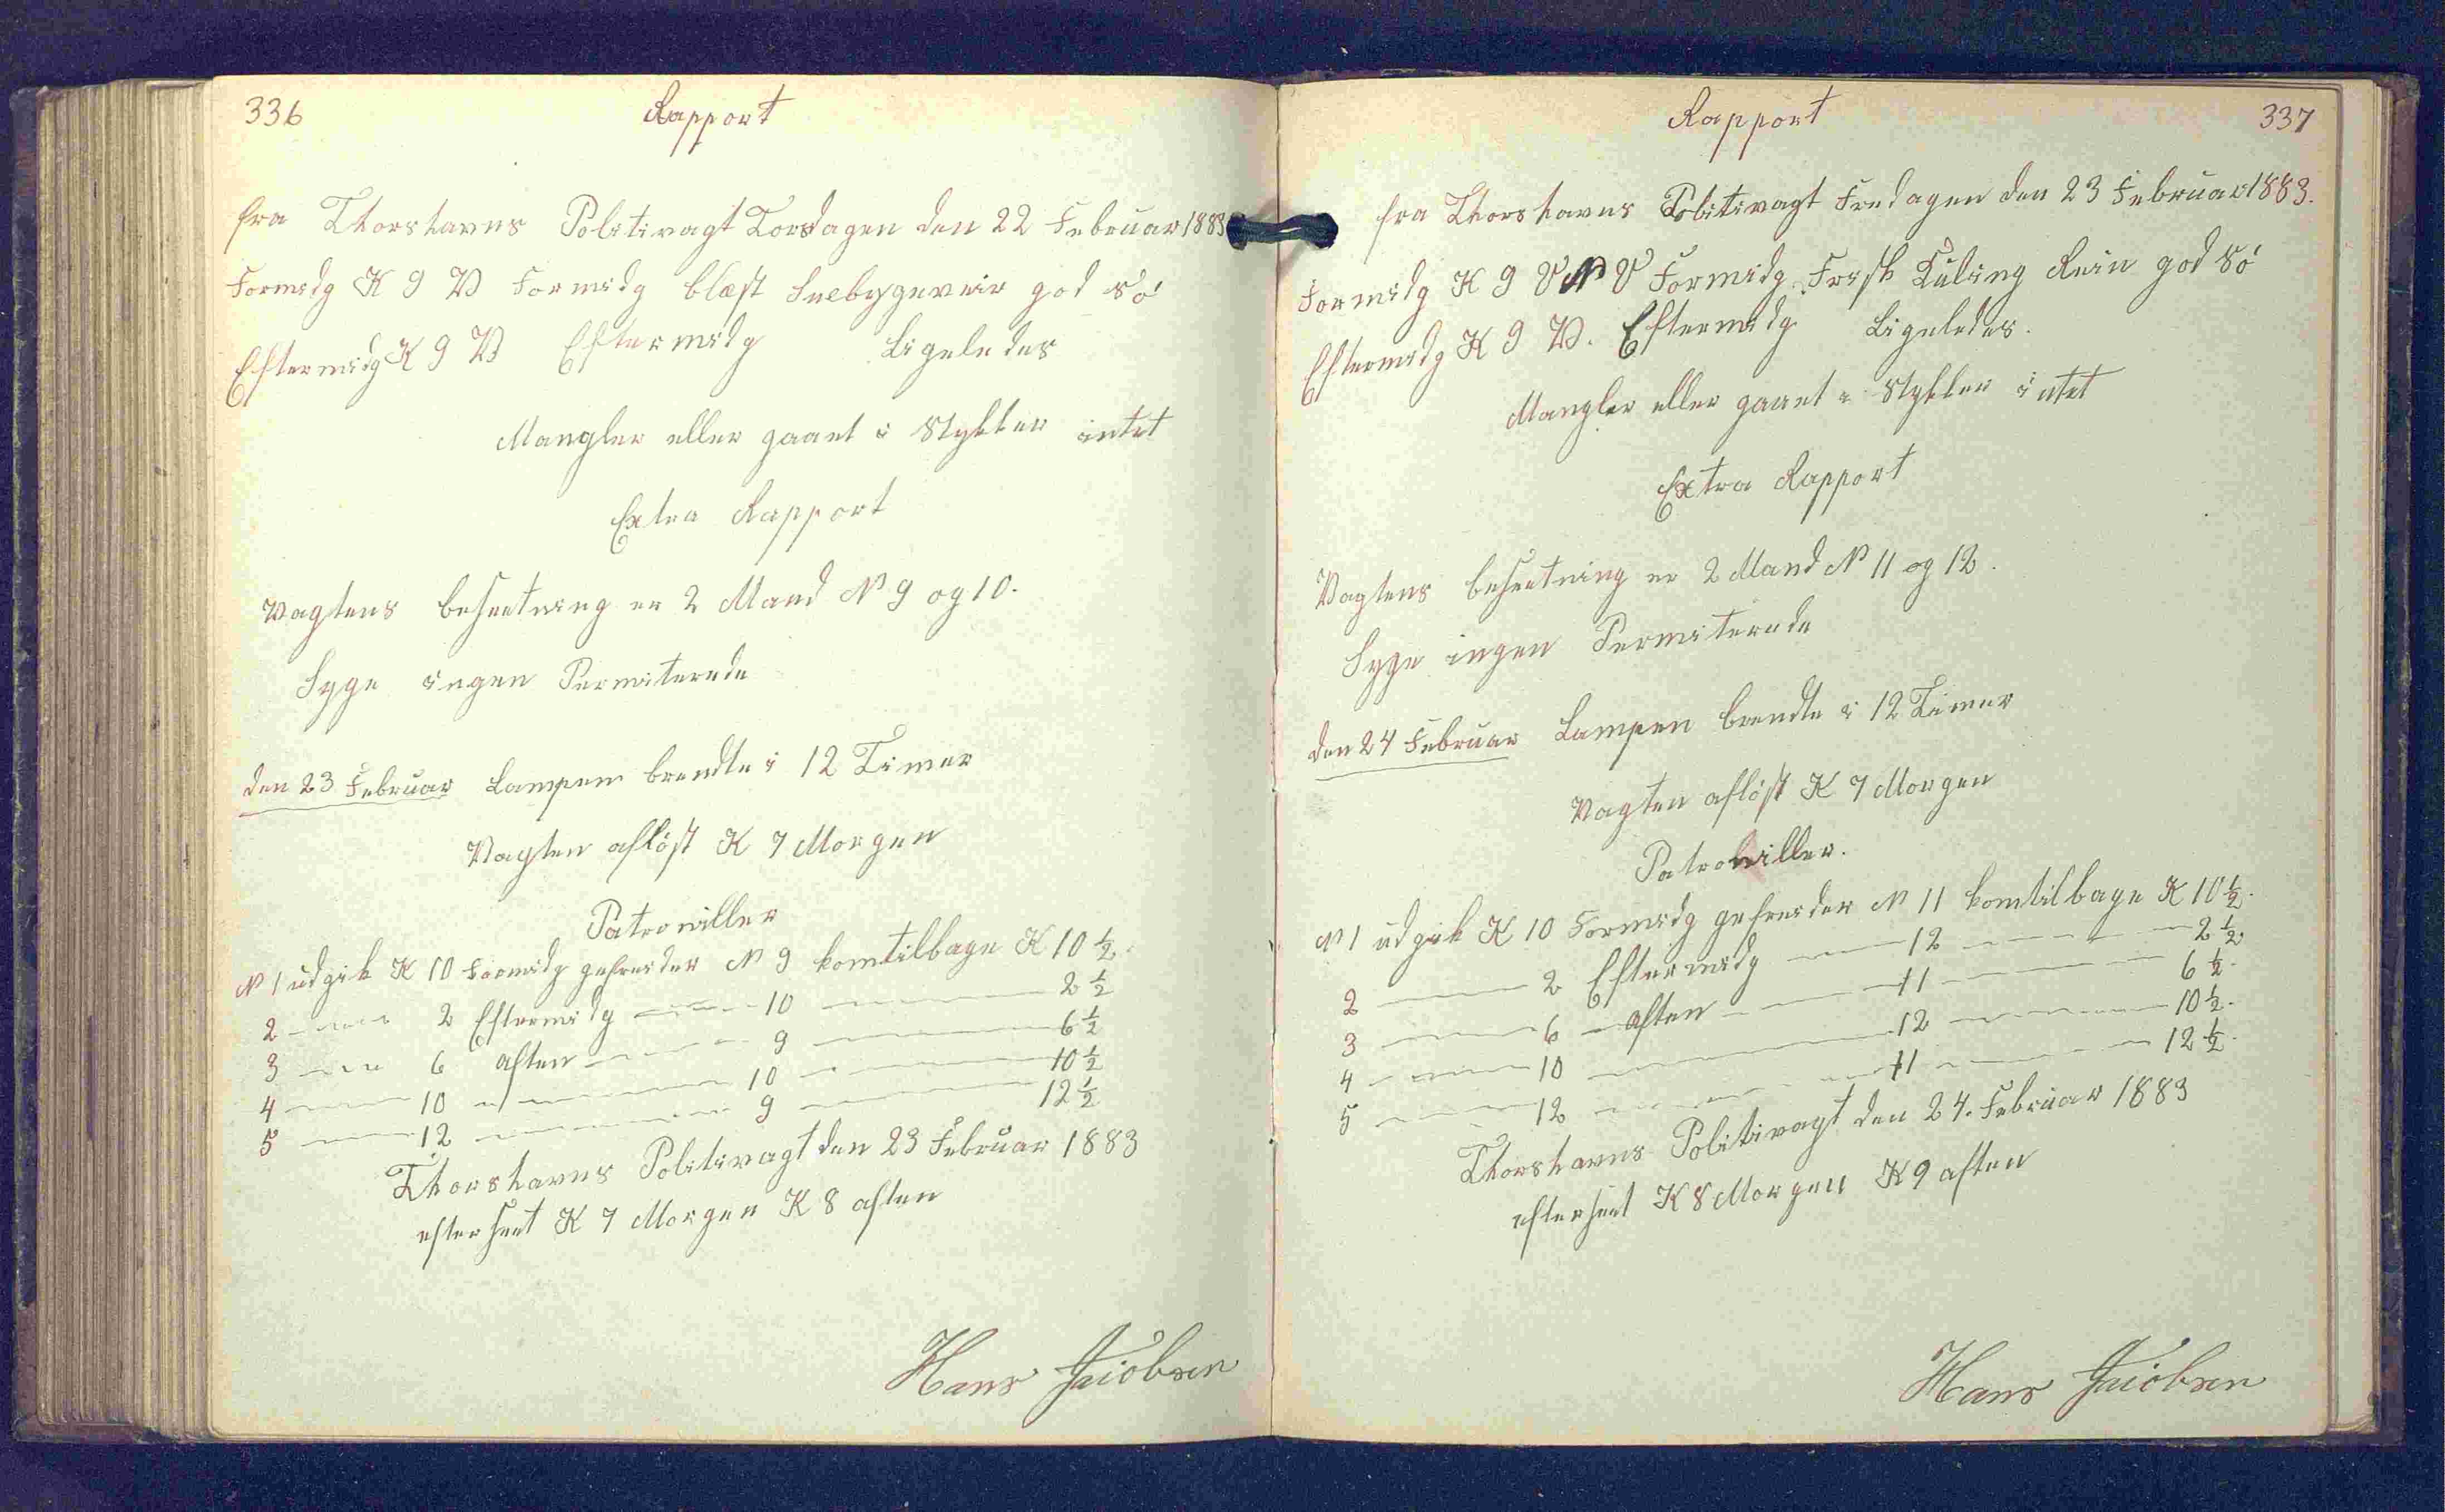 336
Rapport
fra Thorshavns Politivagt Torsdagen den 22 Februar 1883
Formidg K 9 V Formidg blæst Sneebygeveir god Sö
Eftermidg K 9 V Eftermidg Ligeledes
Mangler eller gaaet i Stykker intet
Extra Rapport
Vagtens besætning er 2 Mand N 9 og 10.
Syge ingen Permiterede
den 23 Februar Lampen brendte i 12 Timer
Vagten aflöst K 7 Morgen
Patrouiller
N 1 udgik K 10 Formidg gefreider N 9 komtilbage K 10 ½.
2 — 2 Eftermidg — 10 — 2 ½
3 — 6 aften — 9 — 6 ½
4 — 10 — 10 — 10 ½
5 — 12 — 9 — 12 ½
Thorshavns Politivagt den 23 Februar 1883
efterseet K 7 Morgen K 8 aften
Hans Jacobsen
337
Rapport
fra Thorshavns Politivagt Fredagen den 23 Februar 1883.
Formidg K 9 V N V Formidg Frisk Kuling Rein god Sö
Eftermidg K 9 V. Eftermidg Ligeledes.
Mangler eller gaaet i Stykker intet
Extra Rapport
Vagtens besætning er 2 Mand N 11 og 12.
Syge ingen Permiterede
den 24 Februar Lampen brendte i 12 Timer
Vagten aflöst K 7 Morgen
Patrouiller.
N 1 udgik K 10 Formidg gefreider N 11 komtilbage K 10 ½.
2 — 2 Eftermidg — 12 — 2 ½
3 — 6 — aften — 11 — 6 ½.
4 — 10 — 12 — 10 ½.
5 — 12 — 11 — 12 ½.
Thorshavns Politivagt den 24. Februar 1883
efterseet K 8 Morgen K 9 aften
Hans Jacobsen